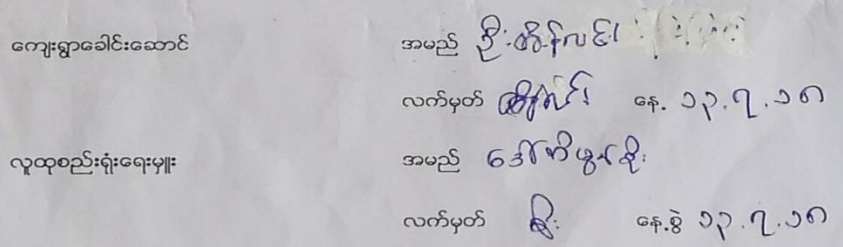 ကျေးရွာခေါင်းဆောင် အမည် ဦးထွန်လင်း
လက်မှတ် နေ့. ၁၃.၇.၁၈
လူထုစည်းရုံးရေးမှူး အမည် ဒေါ်တိဖွန်စိုး
လက်မှတ် စိုး နေ့စွဲ ၁၃.၇.၁၈